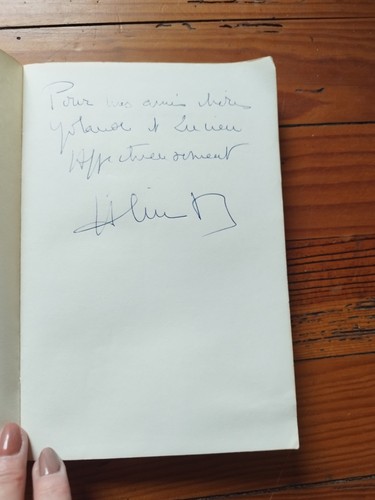 Pour mes amis chers
Yolande et Lucien
Affectueusement